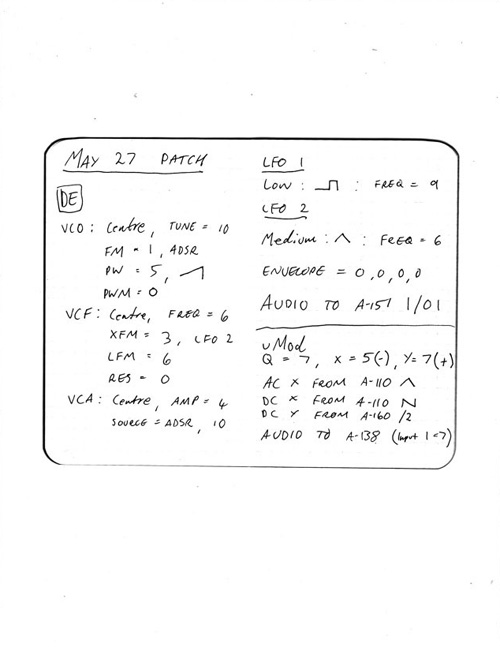 MAY 27 PATCH
DE
VCO: Centre, TUNE = 10
FM = 1, ADSR
PW = 5,
PWM = 0
VCF: Centre, FREQ = 6
XFM = 3, LFO 2
LFM = 6
RES = 0
VCA: Centre, AMP = 4
SOURCE = ADSR, 10
LFO 1
Low: : FREQ = 9
LFO 2
Medium: : FREQ = 6
ENVELOPE = 0,0,0,0
AUDIO TO A-151 1/01
uMod
Q = 7, X = 5(-), Y = 7(+)
AC X FROM A-110
DC X FROM A-110
DC Y FROM A-160 /2
AUDIO TO A-138 (Input 1 = 7)